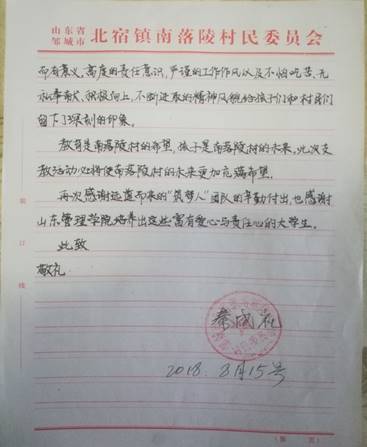 山东省
邹城市 北宿镇南落陵村民委员会
而有意义,高度的责任意识,严谨的工作作风以及不怕吃苦、无
私奉献、积极向上、不断进取的精神风貌给孩子们和村民们
留下了深刻的印象。
教育是南落陵村的希望,孩子是南落陵村的未来,此次支
教活动必将使南落陵村的未来更加充满希望。
再次感谢远道而来的“筑梦人”团队的辛勤付出,也感谢
山东管理学院培养出这些富有爱心与责任心的大学生。
此致
敬礼
装
订
线
秦成礼
2018. 8月15号
(第 页)